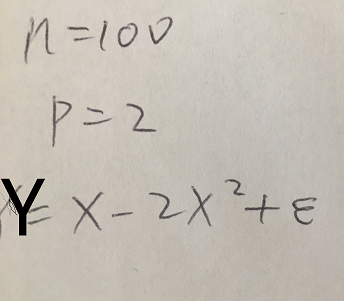 n=100
p=2
Y= X-2X²+ε